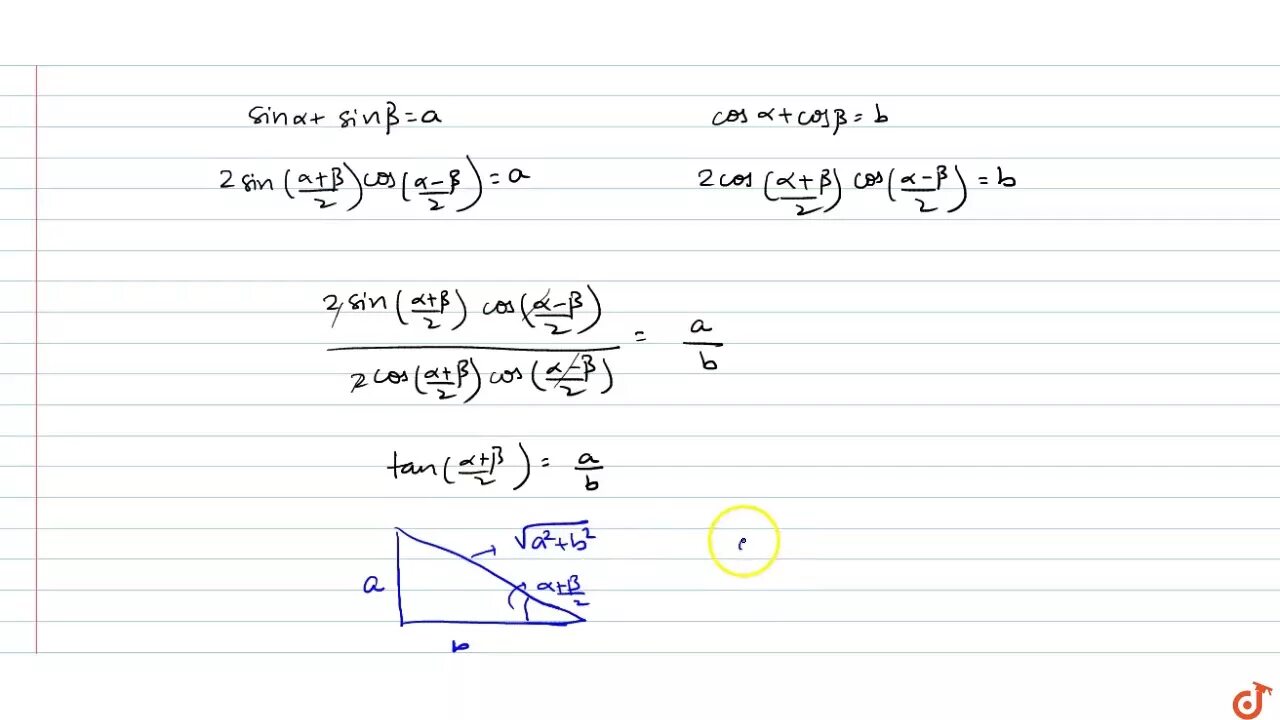 sinα+ sinβ=a
cosα+cosβ=b
2sin(α+β/2)cos(α-β/2)=a
2cos(α+β/2)cos(α-β/2)=b
2sin(α+β/2) cos(α-β/2)
2cos(α+β/2) cos(α-β/2)
= a/b
tan(α+β/2) = a/b
√a²+b²
a
α+β/2
b